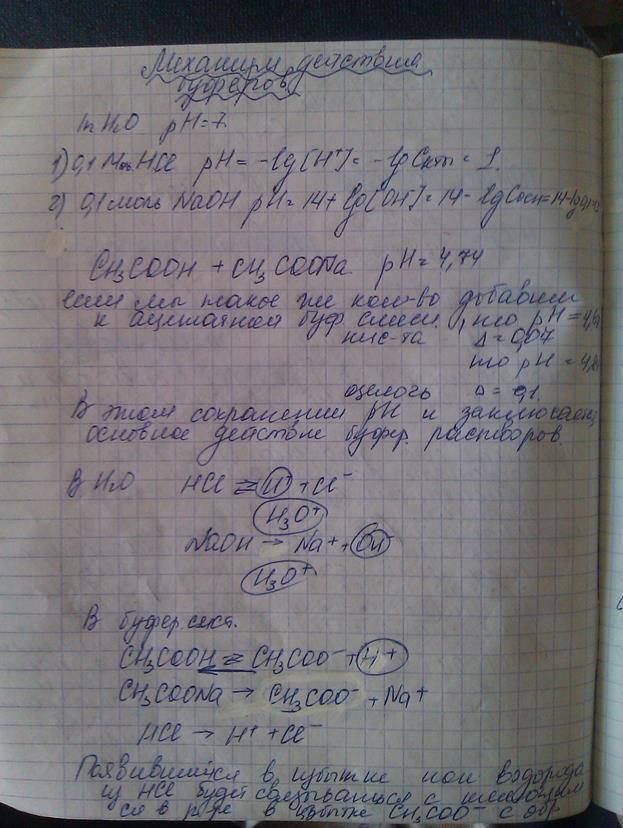 Механизм действия
буферов
In H2O pH=7
1) 0,1 М HCl pH = -lg[H+] = -lg Cкты = 1.
2) 0,1 моль NaOH pH = 14 + lg[OH-] = 14 - lg Cосн = 14-lg0,1=13
CH3COOH + CH3COONa pH = 4,74
если мы такое же кол-во добавим
к ацетатной буф. смеси, то pH = 4,
кис-та Δ = 0,07
то pH = 4,
щелочь Δ = 0,1
В этом сохранении pH и заключается
основное действие буфер. растворов.
В H2O HCl ⇄ H+ + Cl-
H3O+
NaOH → Na+ + OH-
H3O+
В буфер сист.
CH3COOH ⇄ CH3COO- + H+
CH3COONa → CH3COO- + Na+
HCl → H+ + Cl-
Появившийся в избытке ион водорода
из HCl будет связываться с
ся в р-ре в избытке CH3COO- с обр